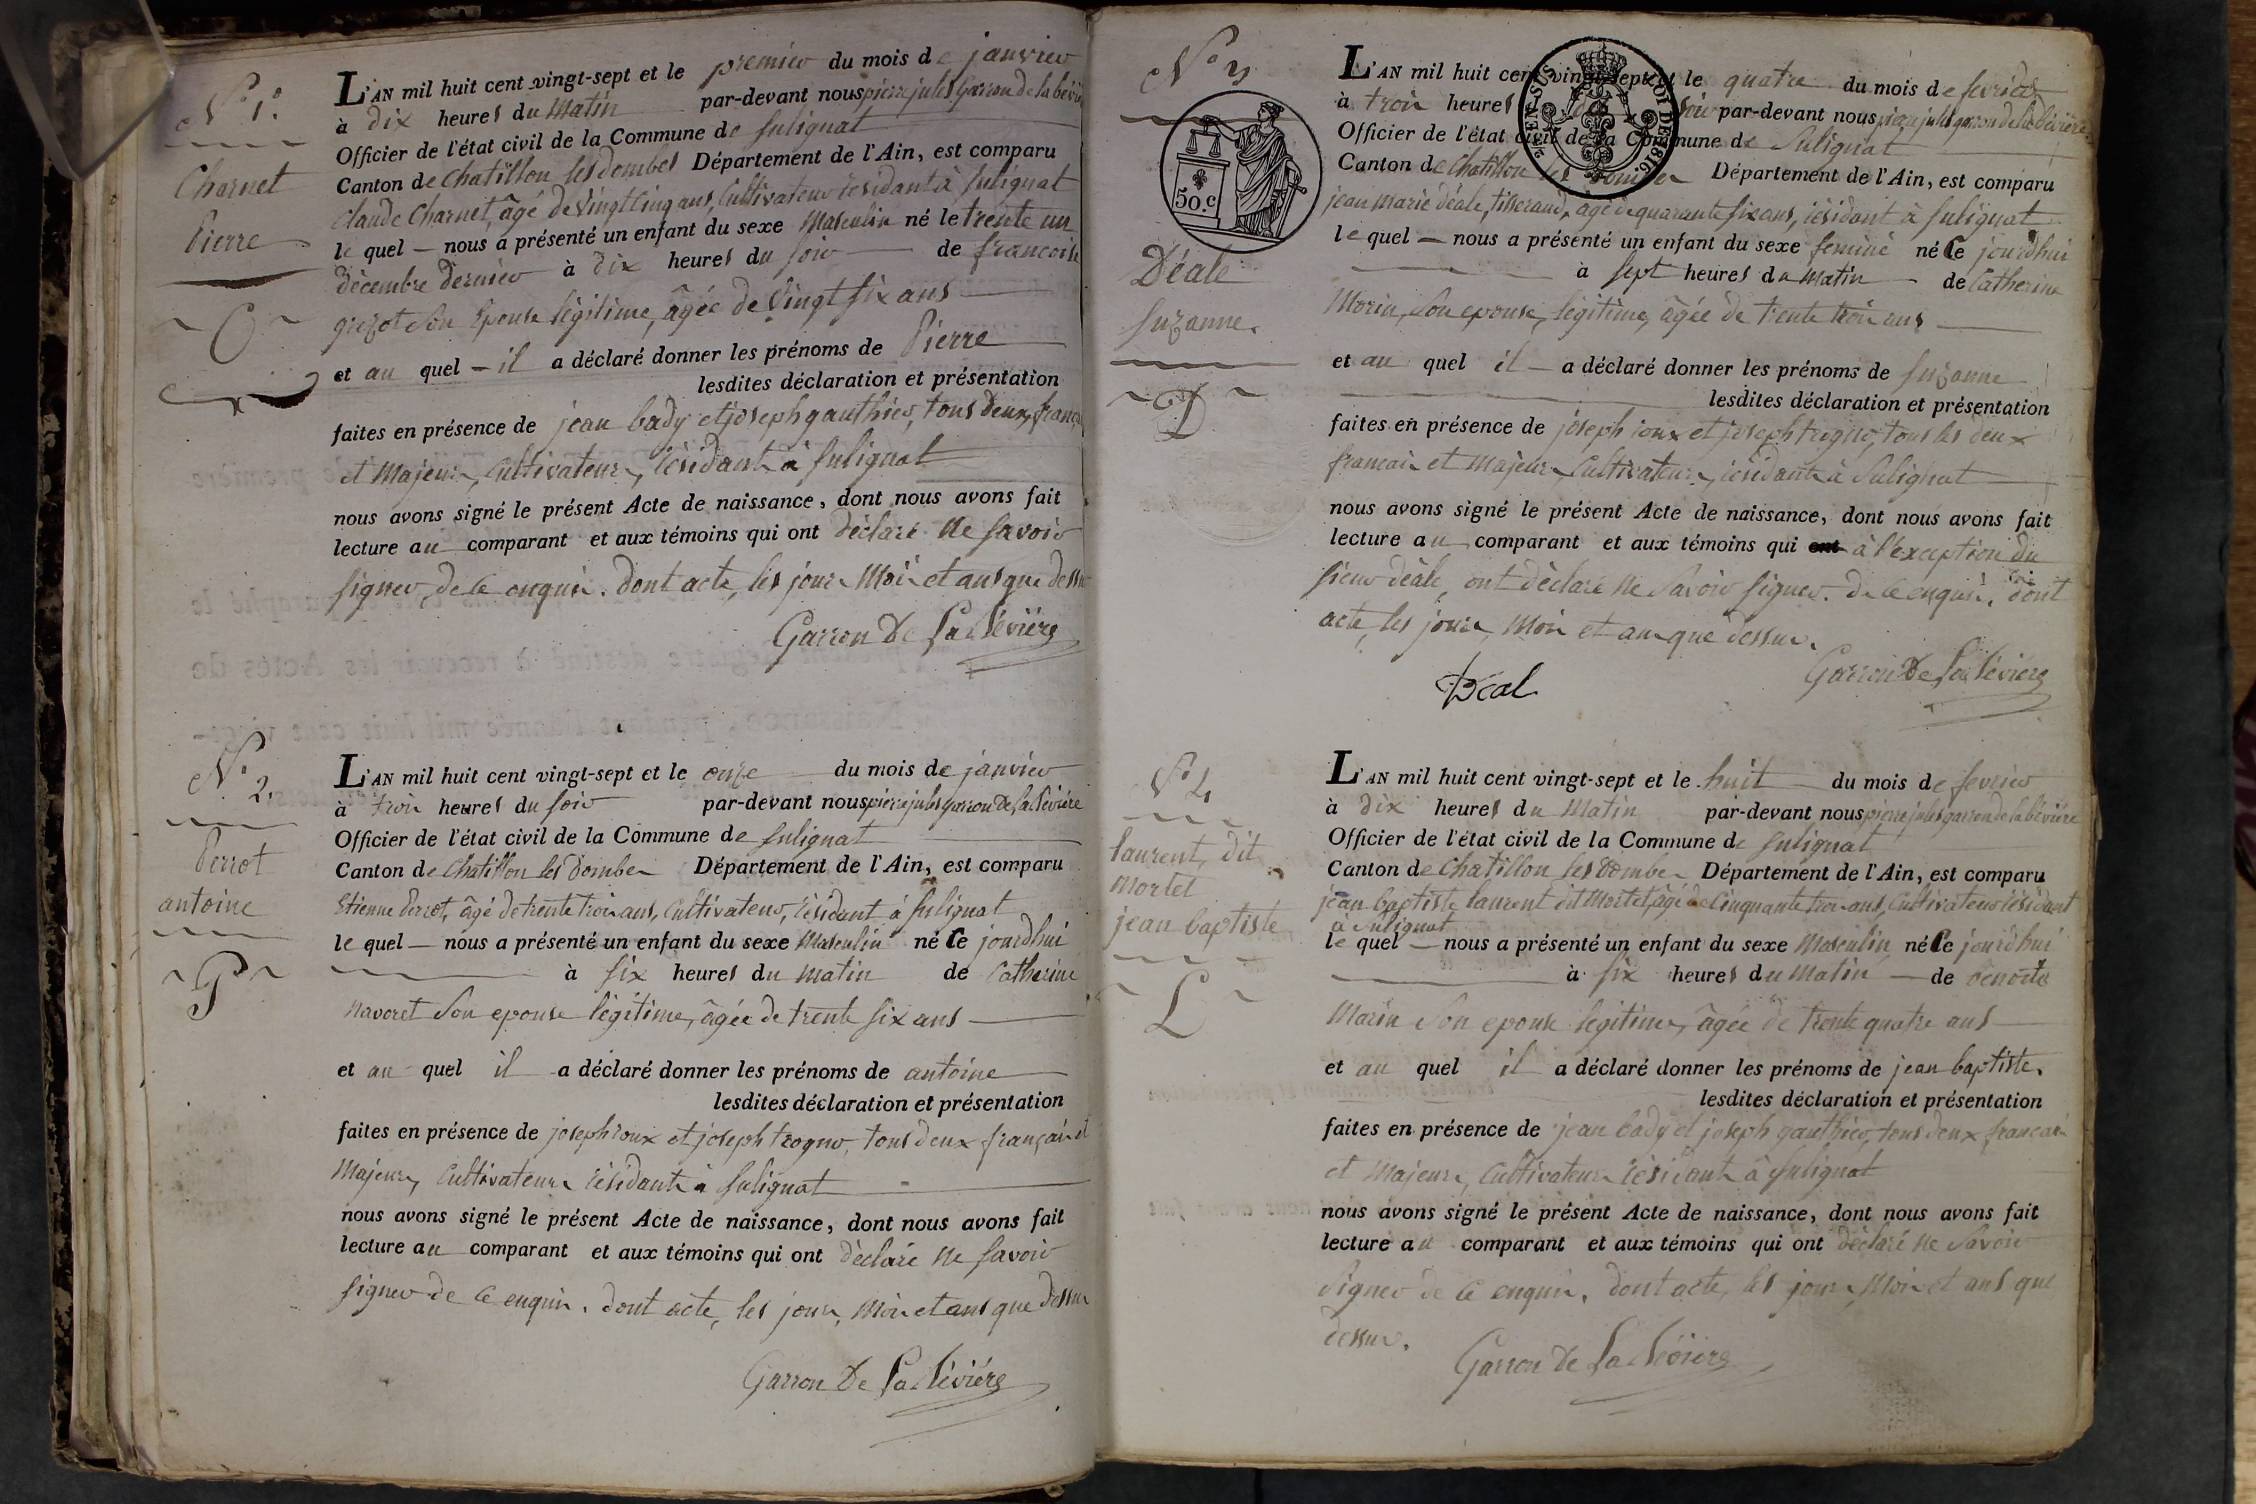 N° 1.
Charnet
Pierre
C
L'AN mil huit cent vingt-sept et le premier du mois de janvier
à dix heures du Matin par-devant nous pierre jules Garron de la bévière
Officier de l'état civil de la Commune de Sulignat
Canton de Chatillon les dombes Département de l'Ain, est comparu
Claude Charnet, âgé de vingt cinq ans, Cultivateur résidant à Sulignat
le quel nous a présenté un enfant du sexe Masculin né le trente un
décembre dernier à dix heures du soir de francoise
grezot son Epouse légitime, âgée de vingt six ans
et au quel il a déclaré donner les prénoms de Pierre
lesdites déclaration et présentation
faites en présence de jean bady et joseph gauthier, tous deux, français
et Majeurs, Cultivateurs, résidants à Sulignat
nous avons signé le présent Acte de naissance, dont nous avons fait
lecture au comparant et aux témoins qui ont déclaré ne savoir
signer, de ce enquis. dont acte, les jours Mois et ans que dessus
Garron De La Bévière
N° 2.
Perrot
antoine
P
L'AN mil huit cent vingt-sept et le onze du mois de janvier
à trois heures du soir par-devant nous pierre jules garron De la Bévière
Officier de l'état civil de la Commune de Sulignat
Canton de Chatillon les Dombes Département de l'Ain, est comparu
Etienne Perrot, âgé de trente trois ans, Cultivateur, résidant à Sulignat
le quel nous a présenté un enfant du sexe Masculin né Ce jourdhui
à six heures du matin de Catherine
Navoret Son epouse légitime, âgée de trente six ans
et au quel il a déclaré donner les prénoms de antoine
lesdites déclaration et présentation
faites en présence de joseph roux et joseph trogno, tous deux français et
Majeurs, Cultivateurs résidants à Sulignat
nous avons signé le présent Acte de naissance, dont nous avons fait
lecture au comparant et aux témoins qui ont déclaré ne savoir
signer de ce enquis. dont acte, les jours, Mois et ans que dessus
Garron De La Bévière
N° 3
50.c
Déale
Suzanne.
D
L'AN mil huit cent vingt-sept et le quatre du mois de fevrier
à trois heures soir par-devant nous pierre jules garron de la bévière
Officier de l'état civil de la Commune de Sulignat
Canton de Chatillon les Dombes Département de l'Ain, est comparu
jean marie déale, tisserand, âgé de quarante six ans, résidant à Sulignat
le quel nous a présenté un enfant du sexe feminé né Ce jourdhui
à sept heures du Matin de Catherine
Morin, Son epouse, légitime, âgée de trente trois ans
et au quel il a déclaré donner les prénoms de Suzanne
lesdites déclaration et présentation
faites en présence de joseph roux et joseph trogno, tous les deux
francais et Majeurs, Cultivateurs, résidants à Sulignat
nous avons signé le présent Acte de naissance, dont nous avons fait
lecture au comparant et aux témoins qui ont à l'exception du
sieur déale, ont déclaré ne savoir signer. de ce enquis, dont
acte, les jours, Mois et an que dessus.
Déal
Garron De La Bévière
N° 4
laurent, dit
mortel
jean baptiste
L
L'AN mil huit cent vingt-sept et le huit du mois de fevrier
à dix heures du Matin par-devant nous pierre jules garron de la bévière
Officier de l'état civil de la Commune de Sulignat
Canton de Chatillon les Dombes Département de l'Ain, est comparu
jean baptiste laurent dit Mortel, âgé de Cinquante trois ans, Cultivateur résidant
à Sulignat
le quel nous a présenté un enfant du sexe Masculin, né Ce jourdhui
à six heures du Matin de benoite
Marin Son epouse legitime, âgée de trente quatre ans
et au quel il a déclaré donner les prénoms de jean baptiste.
lesdites déclaration et présentation
faites en présence de jean bady et joseph gauthier, tous deux francais
et Majeurs, Cultivateurs résidants à Sulignat
nous avons signé le présent Acte de naissance, dont nous avons fait
lecture au comparant et aux témoins qui ont déclaré ne savoir
signer de ce enquis. dont acte, les jours, Mois et ans que
dessus.
Garron de La Bévière